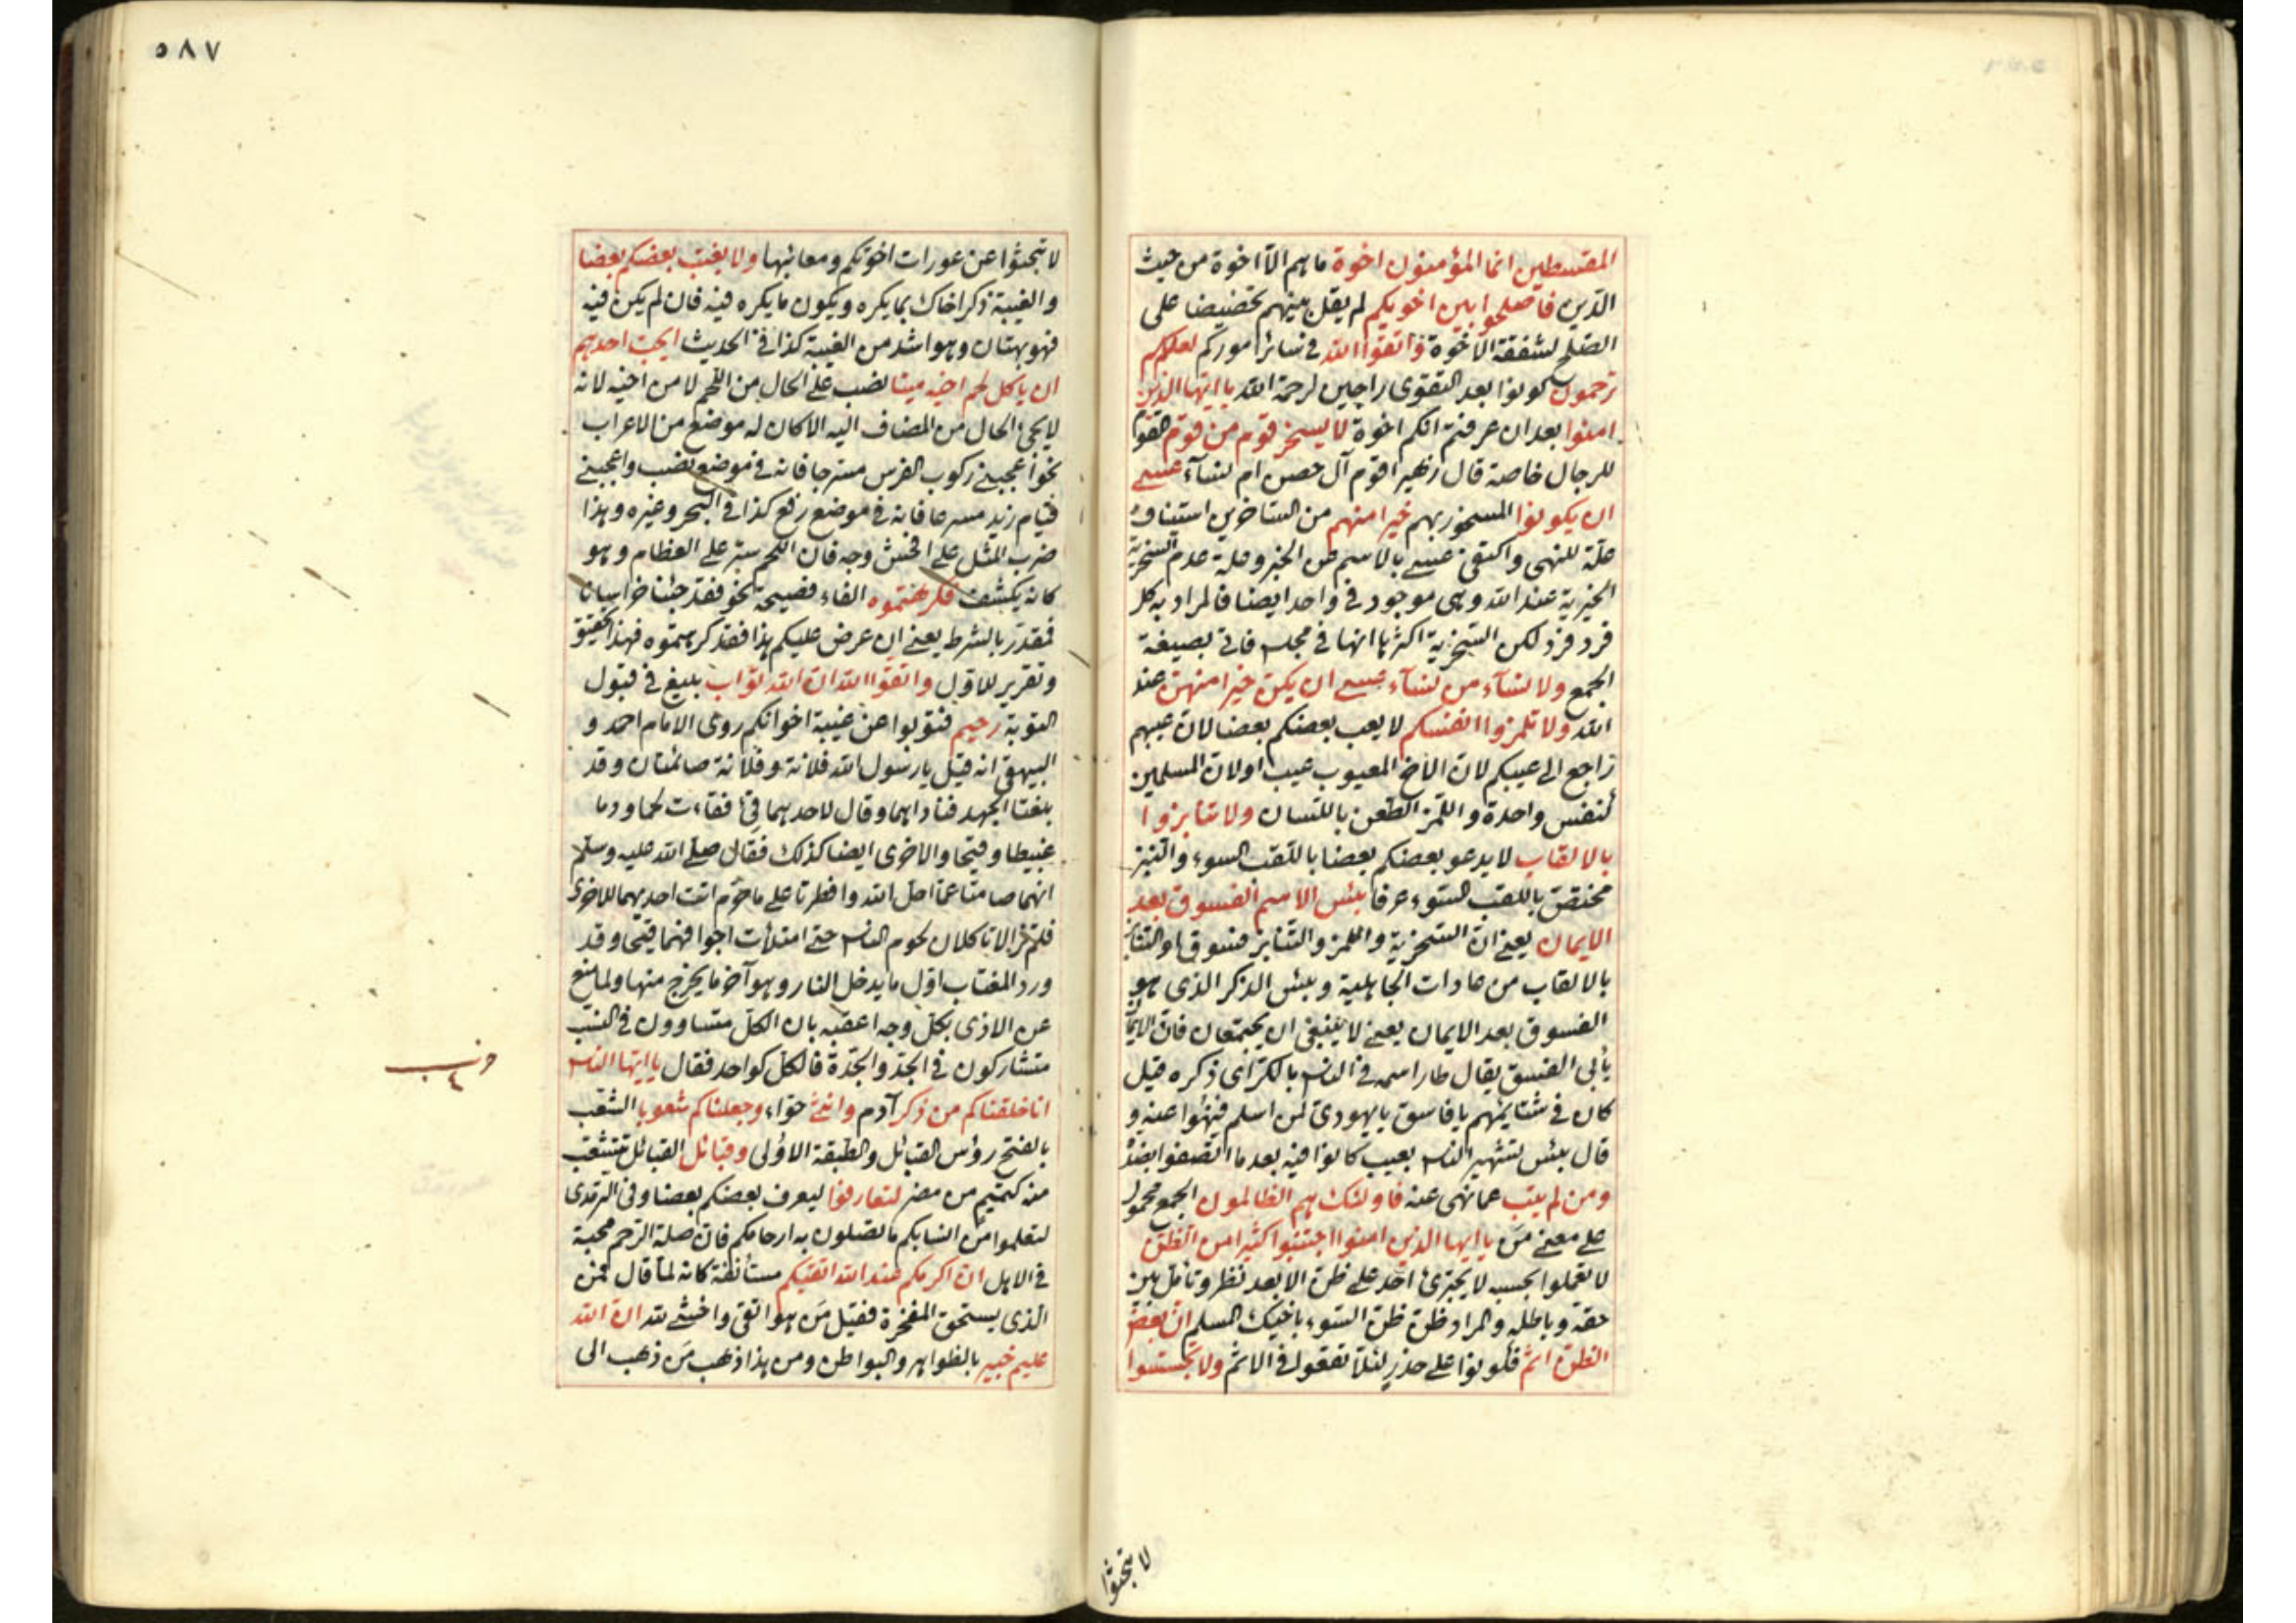 المقسطين انما المؤمنون اخوة ما هم الا اخوة من حيث
الدين فاصلحوا بين اخويكم لم يقل بينهم تخصيصا على
الصلح لشفقة الاخوة واتقوا الله في سائر اموركم لعلكم
ترحمون كونوا بعد التقوى راجين لرحمة الله يا ايها الذين
امنوا بعد ان عرفتم انكم اخوة لا يسخر قوم من قوم القوم
للرجال خاصة قال زهير اقوم آل حصن ام نساء عسى
ان يكونوا المسخور بهم خيرا منهم من الساخرين استيناف
علة للنهى واكتفى عسى بالاسم عن الخبر وعلة عدم السخرية
الخيرية عند الله وهى موجود في واحد ايضا فالمراد به كل
فرد فرد لكن السخرية اكثر ما انها في مجلس فاتى بصيغة
الجمع ولا نساء من نساء عسى ان يكن خيرا منهن عند
الله ولا تلمزوا انفسكم لا يعب بعضكم بعضا لان عيبهم
راجع الى عيبكم لان الاخ المعيوب عيب او لان المسلمين
كنفس واحدة واللمز الطعن باللسان ولا تنابزوا
بالالقاب لا يدعو بعضكم بعضا باللقب السوء والنبز
مختص باللقب السوء عرفا بئس الاسم الفسوق بعد
الايمان يعنى ان السخرية واللمز والتنابز فسوق او التنابز
بالالقاب من عادات الجاهلية وبئس الذكر الذى هو
الفسوق بعد الايمان يعنى لا ينبغى ان يجتمعان فان الايمان
يأبى الفسق يقال طار اسمه في الناس بالكرم اى ذكره قيل
كان في شتايمهم يا فاسق يا يهودى لمن اسلم فنهوا عنه و
قال بئس تشهير الناس بعيب كانوا فيه بعد ما اتصفوا بضده
ومن لم يتب عما نهى عنه فاولئك هم الظالمون الجمع محمول
على معنى من يا ايها الذين امنوا اجتنبوا كثيرا من الظن
لا تعملوا بحسبه لا يجترئ احد على ظن الا بعد نظر وتأمل بين
حقه وباطله والمراد ظن ظن السوء باخيك المسلم ان بعض
الظن اثم فكونوا على حذر لئلا تقعوا في الاثم ولا تجسسوا
لا تبحثوا
٥٨٧
لا تبحثوا عن عورات اخوتكم ومعائبها ولا يغتب بعضكم بعضا
والغيبة ذكر اخاك بما يكره ويكون ما يكره فيه فان لم يكن فيه
فهو بهتان وهو اشد من الغيبة كذا في الحديث ايحب احدهم
ان ياكل لحم اخيه ميتا نصب على الحال من اللحم لا من اخيه لانه
لا يجئ الحال من المضاف اليه الا كان له موضع من الاعراب
نحو اعجبنى ركوب الفرس مسرجا فانه في موضع نصب واعجبنى
قيام زيد مسرعا فانه في موضع رفع كذا في البحر وغيره وهذا
ضرب المثل على افحش وجه فان اللحم ستر على العظام وهو
كانه يكشف فكرهتموه الفاء فصيحة نحو فقد جئنا خراسانا
فمقدر بالشرط يعنى ان عرض عليكم هذا فقد كرهتموه فهذا تحقيق
وتقرير للاول واتقوا الله ان الله تواب بليغ في قبول
التوبة رحيم فتوبوا عن غيبة اخوانكم روى الامام احمد و
البيهقى انه قيل يا رسول الله فلانة وفلانة صائمتان وقد
بلغتا الجهد فناداهما وقال لاحدهما قئ فقاءت لحما ودما
عبيطا وقيحا والاخرى ايضا كذلك فقال صلى الله عليه وسلم
انهما صامتا عما احل الله وافطرتا على ما حرم اتت احديهما للاخرى
فلم تزالا تاكلان لحوم الناس حتى امتلأت اجوافهما قيحا وقد
ورد المغتاب اول ما يدخل النار وهو آخر ما يخرج منها ولما منع
عن الاذى بكل وجه اعقبه بان الكل متساوون في النسب
متشاركون في الجد والجدة فالكل كواحد فقال يا ايها الناس
انا خلقناكم من ذكر آدم وانثى حواء وجعلناكم شعوبا الشعب
بالفتح رؤس القبائل والطبقة الاولى وقبائل القبائل تتشعب
منه كتميم من مضر لتعارفوا ليعرف بعضكم بعضا وفى الترمذى
لتعلموا من انسابكم ما تصلون به ارحامكم فان صلة الرحم محبة
في الاهل ان اكرمكم عند الله اتقيكم مستأنفة كانه لما قال فمن
الذى يستحق المفخرة فقيل من هو اتقى واخشى لله ان الله
عليم خبير بالظواهر والبواطن ومن هذا ذهب من ذهب الى
حزب